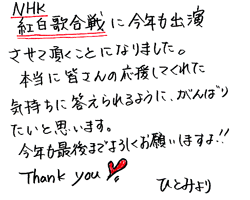 NHK
紅白歌合戦に今年も出演
させて頂くことになりました。
本当に皆さんの応援してくれた
気持ちに答えられるように、がんばり
たいと思います。
今年も最後までよろしくお願いしますよ!!
Thank you
ひとみより